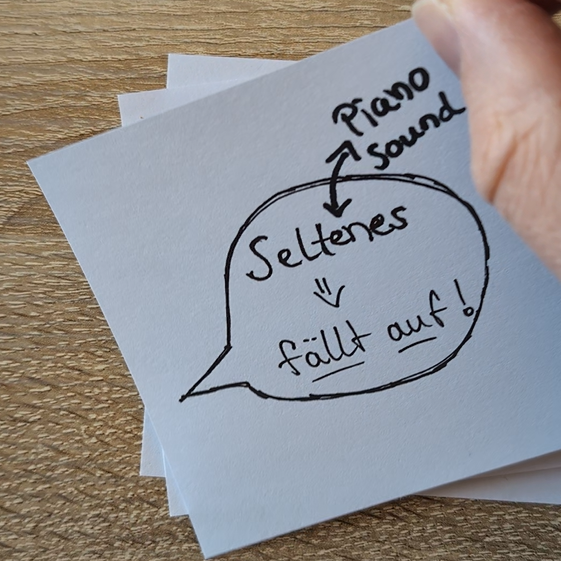 Piano
sound
Seltenes
⇓
fällt auf!